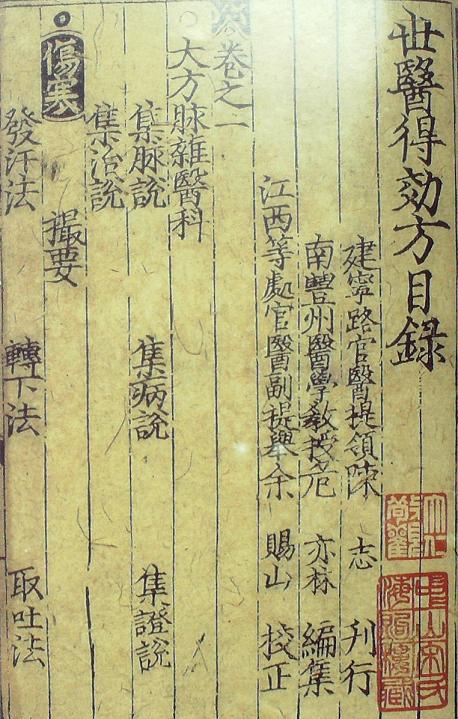 世醫得効方目錄
建寧路官醫提領陳 志 刋行
南豐州醫學教授危 亦林 編集
江西等處官醫副提舉余 賜山 校正
卷之一
大方脉雜醫科
集脉說 集病說 集證說
集治說
傷寒 撮要
發汗法 轉下法 取吐法